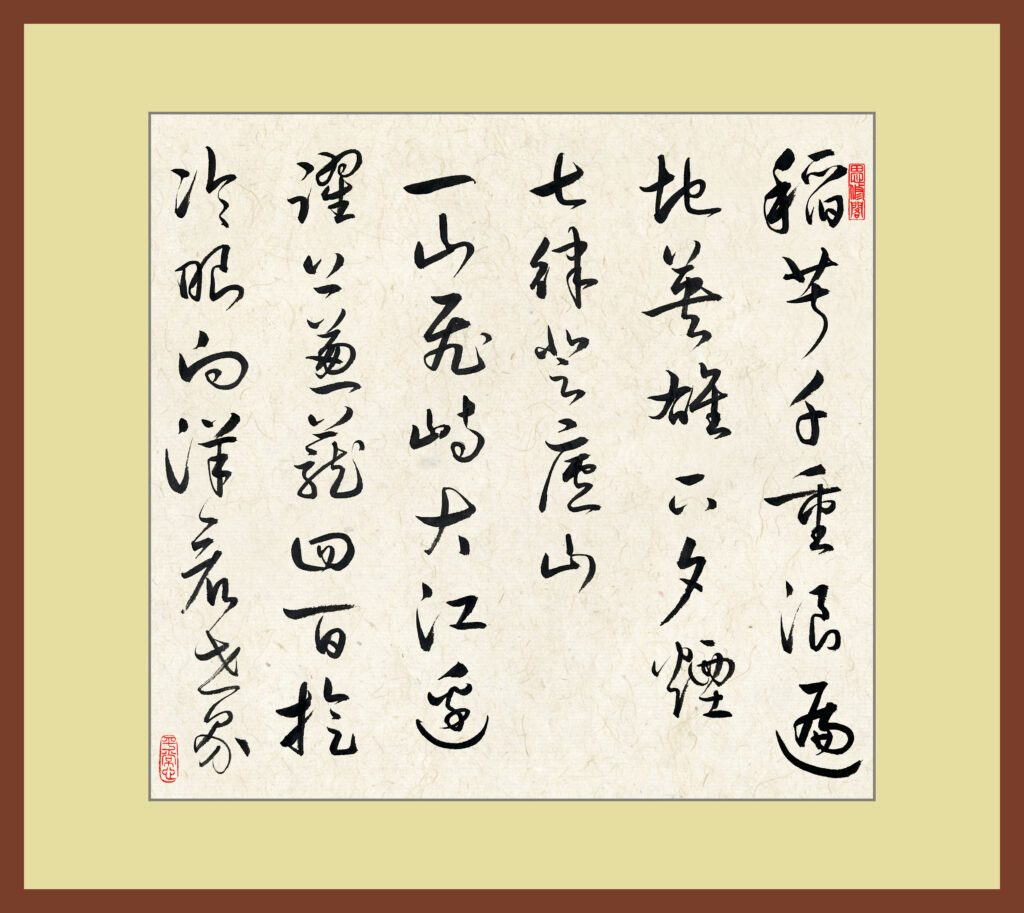 稻菽千重浪遍
地英雄下夕煙
七律登廬山
一山飛峙大江邊
躍上蔥蘢四百旋
冷眼向洋看世界